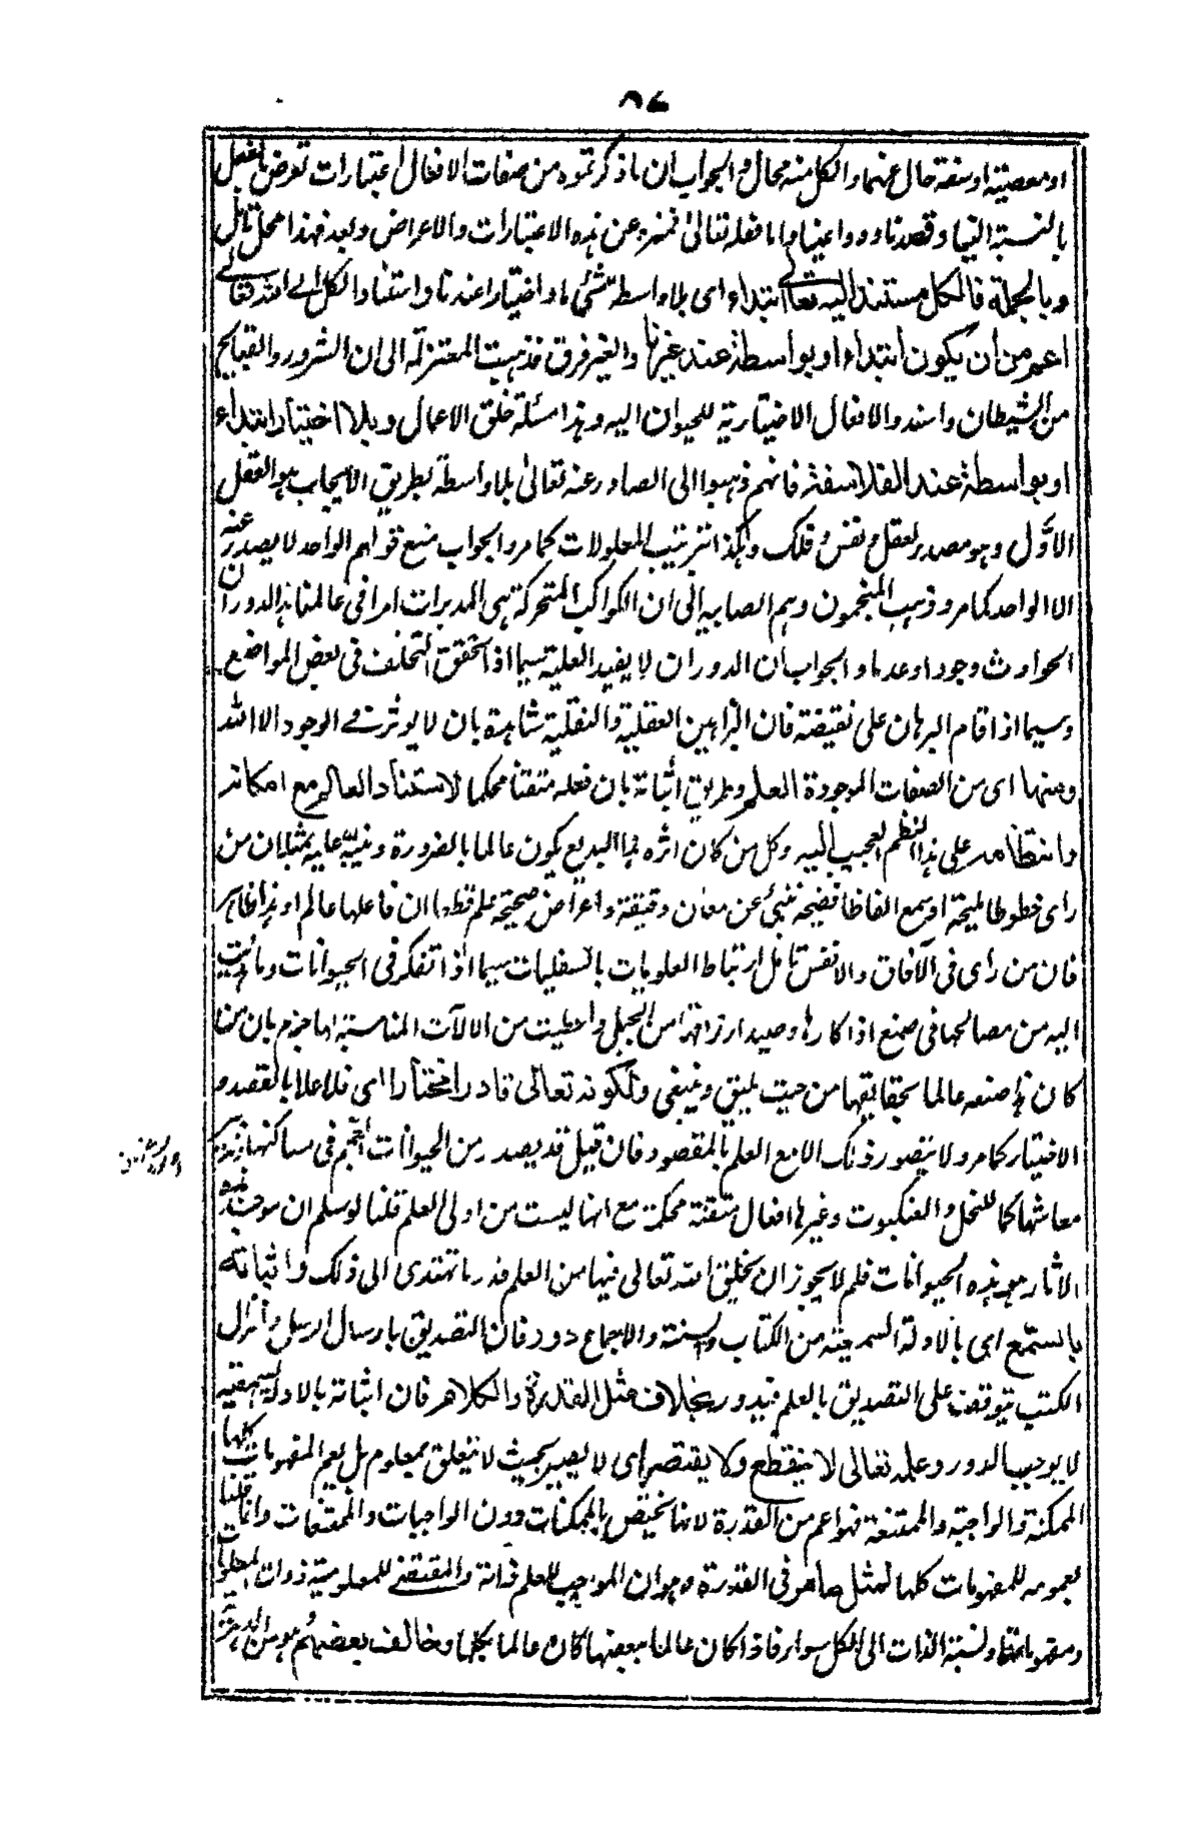 ٨٤
او معصيته او سفه خال عنهما والكل منه محال والجواب ان ما ذكرتموه من صفات الافعال اعتبارات تعرض لفعل
بالنسبة الينا وقصدنا ودواعينا واما فعله تعالى فمنزه عن هذه الاعتبارات والاعراض وبعد فهذا محل تامل
وبالجملة فالكل مستند اليه تعالى ابتداء اى بلا واسطة شئ ما واختيارا عندنا واستناد الكل الى الله تعالى
اعم من ان يكون ابتداء او بواسطة عند غيرنا والغير فرق فذهبت المعتزلة الى ان الشرور والقبايح
من الشيطان واسندوا الافعال الاختيارية للحيوان اليه وهذا مسئلة خلق الاعمال وبلا اختيار ابتداء
او بواسطة عند الفلاسفة فانهم ذهبوا الى الصادر عنه تعالى بلا واسطة بطريق الايجاب هو العقل
الاول وهو مصدر لعقل ونفس وفلك وهكذا تترتب المعلولات كما مر والجواب منع قولهم الواحد لا يصدر عنه
الا الواحد كما مر وذهب المنجمون وهم الصابيه الى ان الكواكب المتحركة هى المدبرات امرا فى عالمنا هذا لدوران
الحوادث وجودا وعدما والجواب ان الدوران لا يفيد العلية سيما اذا تحقق التخلف فى بعض المواضع
وسيما اذا قام البرهان على نقيضه فان البراهين العقلية والنقلية شاهدة بان لا يوثر فى الوجود الا الله
ومنها اى من الصفات الموجودة العلم وطريق اثباته بان فعله متقنا محكما لاستناد العالم مع امكانه
وانتظامه على هذا النظم العجيب اليه وكل من كان اثره هذا البديع يكون عالما بالضرورة وينبه عليه بمثلان من
راى خطوطا مليحة او سمع الفاظا فصيحة تنبئ عن معان دقيقة واغراض صحيحة علم قطعا ان فاعلها عالم وهذا ظاهر
فان من راى فى الآفاق والانفس تامل ارتباط العلويات بالسفليات سيما اذا تفكر فى الحيوانات وما هديت
اليه من مصالحها فى صنع اذا كارها وصيد ارزاقها من الحيل واعطيت من الآلات المناسبة لها جزم بان من
كان هذا صنعه عالما بحقايقها من حيث يليق وينبغى ولكونه تعالى قادرا مختارا اى فاعلا بالقصد و
الاختيار كما مر ولا يتصور ذلك الا مع العلم بالمقصود فان قيل قد يصدر من الحيوانات العجم فى مساكنها وتدبير
معاشها كما للنحل والعنكبوت وغيرها افعال متقنة محكمة مع انها ليست من اولى العلم قلنا لو سلم ان موجد هذه
الاثار هو هذه الحيوانات فلم لا يجوز ان يخلق الله تعالى فيها من العلم قدر ما تهتدى الى ذلك واثباته
بالسمع اى بالادلة السمعية من الكتاب والسنة والاجماع دور فان التصديق بارسال الرسل وانزال
الكتب يتوقف على التصديق بالعلم فيدور بخلاف مثل القدرة والكلام فان اثباته بالادلة السمعية
لا يوجب الدور وعلمه تعالى لا ينقطع ولا يقتصر اى لا يصير بحيث لا يتعلق بمعلوم بل يعم المفهومات كلها
الممكنة والواجبة والممتنعة فهو اعم من القدرة لانها تختص بالممكنات دون الواجبات والممتنعات وانما قلنا
بعمومه للمفهومات كلها لمثل ما مر فى القدرة وهو ان الموجب للعلم ذاته والمقتضى للمعلومية ذوات المعلومات
ومفهوماتها ونسبة الذات الى الكل سواء فاذا كان عالما ببعضها كان عالما بكلها وخالف بعضهم هو من الدهرية